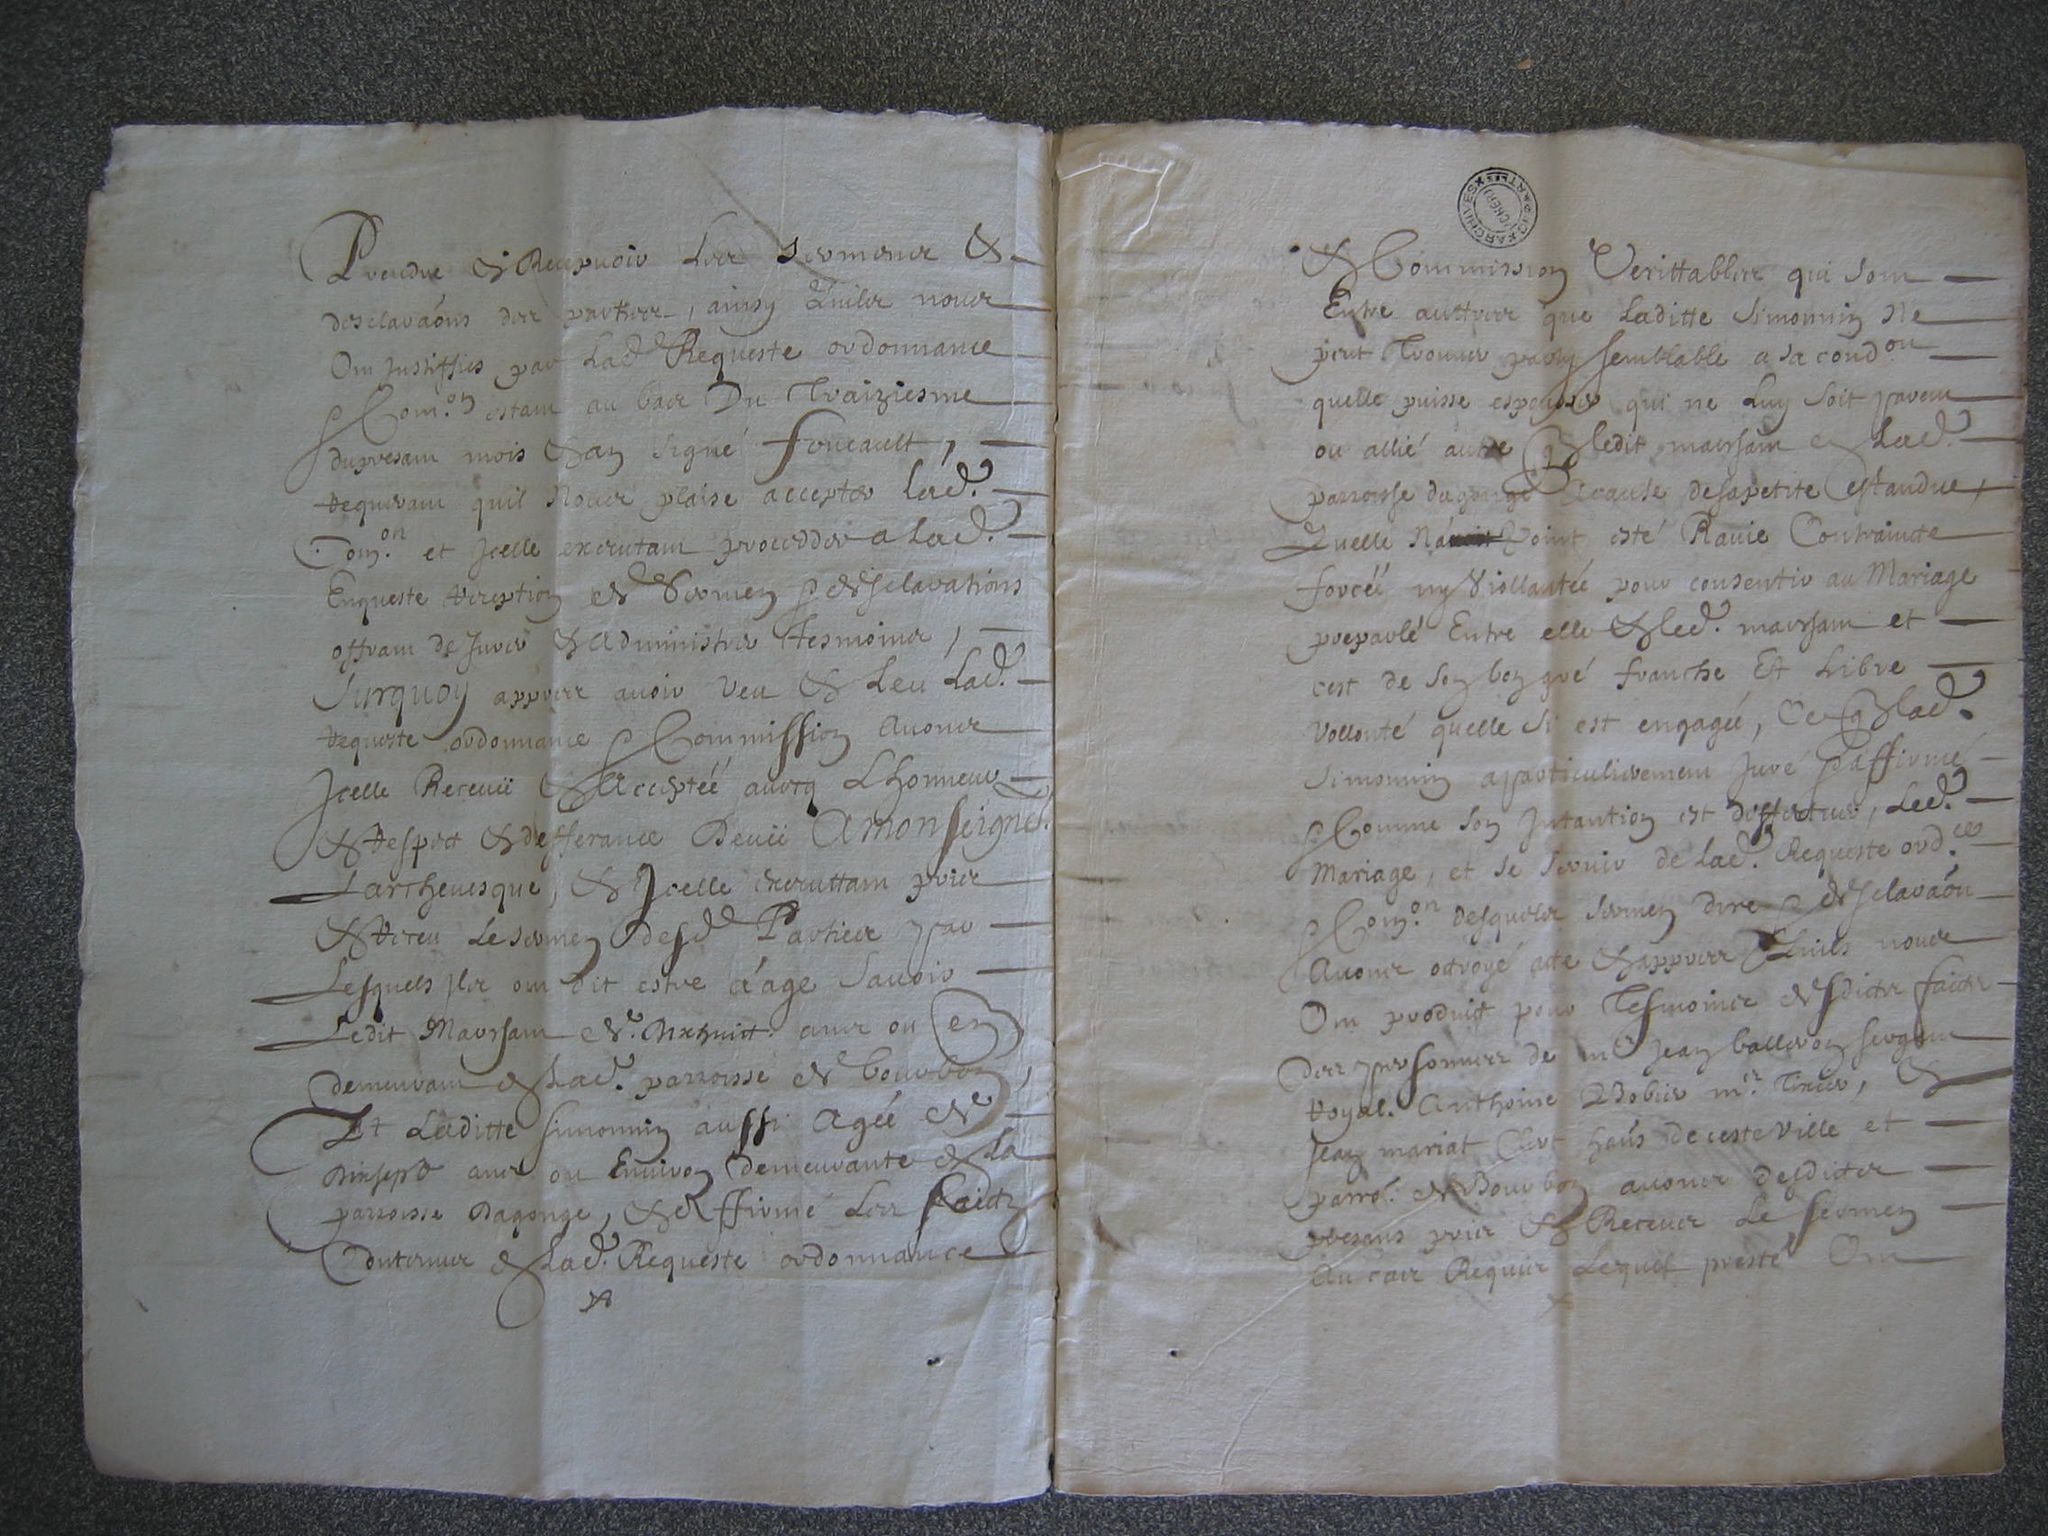 Prendre & Recepuoir Les sermens &
desclaraõns des parties, ainsy Quils nous
Ont justiffiés par lad. Requeste ordonnance
& Com.on estant au bas Du Traiziesme
du present mois & an signé foucault,
requerant quil Nous plaise accepter lad.
Com.on et jcelle executant proceddes a lad.
Enqueste reception de sermen & desclarations
offrant de jurer & administrer tesmoins,
Surquoy appres auoir veu & Leu Lad.
requeste ordonnance & Commission Auons
Jcelle Receuë & Acceptéé auecq Lhonneur
& respect & defferance Deuë A monseign.r
Larcheuesque, & jcelle executtant pris
& receu Le sermen desd. Parties par
Lesquels jls ont dit estre áágé Sauoir
Ledit Marsant de ans ou en
demeurant en Lad. parroisse de bourbon,
Et Laditte simonnin aussi agéé de
ans ou Enuiron demeurante en La
parroisse Dagonge, & Affirmé Les faicts
Contenus en Lad. Requeste ordonnance
& Commission Verittables qui sont
Entre auttres que Laditte simonnin Ne
peut Trouuer party semblable a sa cond.on
quelle puisse espouser qui ne Luy soit parent
ou allié autre que ledit marsant en Lad.
parroisse dagonge a cause de sa petite estandue,
Quelle Na Point esté Rauie Contraincte
forcéé ny Viollantéé pour consentir au Mariage
preparlé Entre elle & led. marsant et
cest de son bon gré franche Et Libre
Vollonté quelle si est engagéé, Ce que lad.
Simonnin a particulierement juré & affirmé
& Comme son jntantion est deffectuer, Led.
Mariage, et se seruir de lad. Requeste ord.ces
& Com.on desquels sermen dire & desclaraõn
Auons octroyé acte & appres Quils nous
Ont produict pour Tesmoins desdicts faicts
Des personnes de m.e jean balleron sergent
royal. Anthoine m.e , &
jean mariat Clert haûs de ceste ville et
parro. de Bourbon auons desdicts
presens pris & Receus Le sermen
Au cas Requis Lequel presté Ont
ARCHIVES
CHER